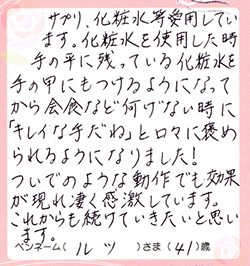 サプリ、化粧水等愛用してい
ます。化粧水を使用した時
手の平に残っている化粧水を
手の甲にもつけるようになって
から会食など何げない時に
「キレイな手だね」と口々に褒め
られるようになりました!
ついでのような動作でも効果
が現れ凄く感激しています。
これからも続けていきたいと思い
ます。
ペンネーム( ルツ )さま(41)歳